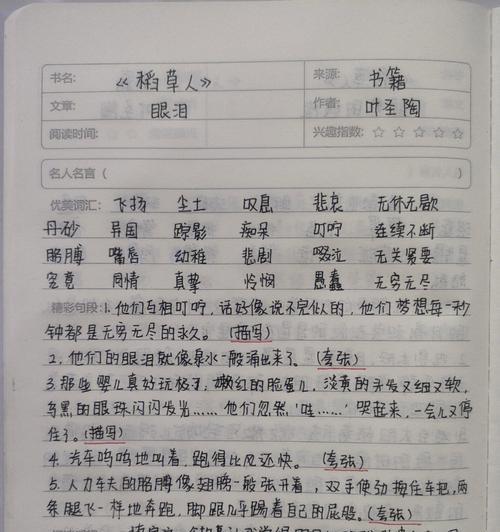 书名: 《稻草人》 来源: 书籍
文章: 眼泪 作者: 叶圣陶
阅读时间: 兴趣指数: ☆ ☆ ☆ ☆ ☆
名人名言 ( )
优美词汇: 飞扬 尘土 叹息 悲哀 无休无歇
丹砂 异国 踪影 痴呆 叮咛 连续不断
胳膊 嘴唇 幼稚 悲剧 啜泣 无关紧要
究竟 同情 真挚 怜悯 愚蠢 无穷无尽
精彩句段: 1. 他们互相叮咛, 话好像说不完似的, 他们梦想每一秒
钟都是无穷无尽的永久。(描写)
2. 他们的眼泪就像泉水一般涌出来了。(夸张)
3. 那些婴儿真好玩极了, 嫩红的脸蛋儿, 淡黄的头发又细又软,
乌黑的眼珠闪闪发光……他们忽然“哇……”哭起来, 一会儿又停
住了。(描写)
4. 汽车呜呜地叫着, 跑得比风还快。(夸张)
5. 人力车夫的胳膊像翅膀一般张开着, 双手使劲按住车把, 两
条腿飞一样地奔跑, 脚跟几乎踢着自己的屁股。(夸张)